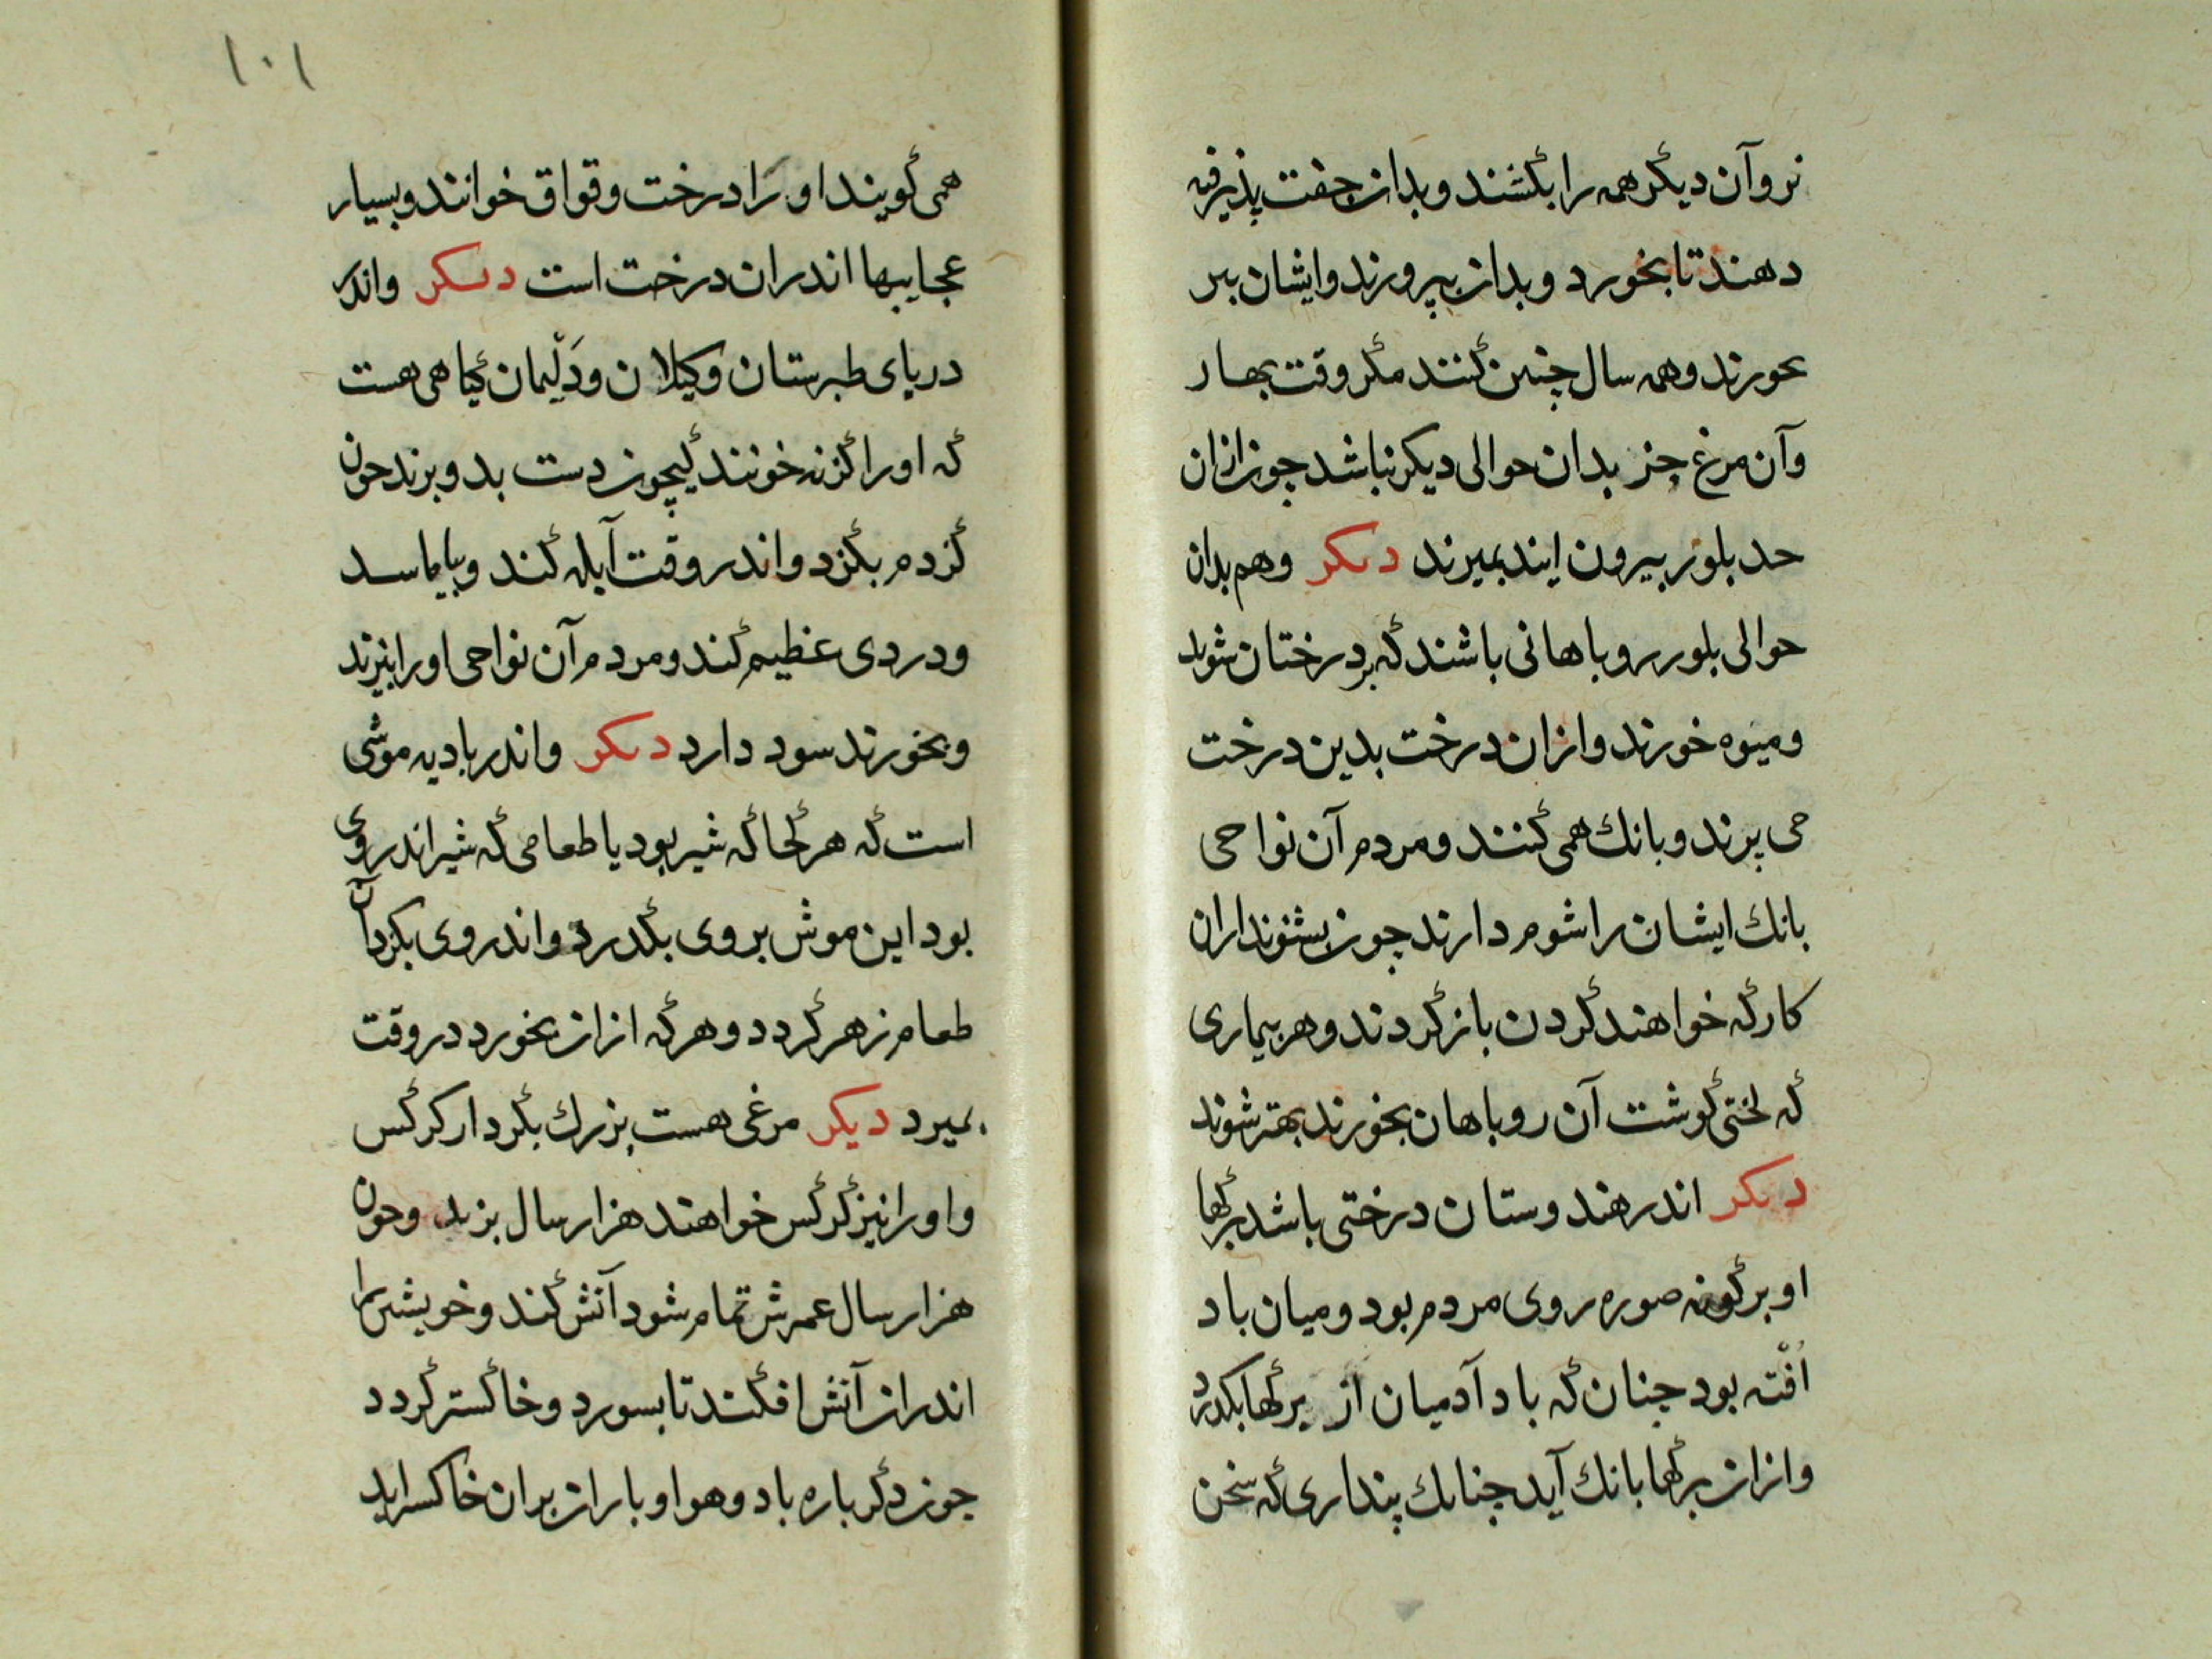 نر وآن دیگر همه را بکشند و بدان جفت پذیرفته
دهند تا بخورد و بدان بپرورند وایشان نیر
بخورند وهمه سال چنین کنند مگر وقت بهار
وآن مرغ جز بدان حوالی دیگر نباشد چون ازان
حد بلور بیرون ایند بمیرند دیکر وهم بدان
حوالی بلور روباهانی باشند که بر درختان شوند
ومیوه خورند وازان درخت بدین درخت
می پرند وبانك همی کنند ومردم آن نواحی
بانك ایشان را شوم دارند چون بشنوند ازان
کار که خواهند کردن باز گردند وهر بیماری
که لختی گوشت آن روباهان بخورند بهتر شوند
دیکر اندر هندوستان درختی باشد برگها
او بر گونه صوره روی مردم بود ومیان باد
افته بود چنان که باد آدمیان از برگها بگذرد
وازان برگها بانك آید چنانك پنداری که سخن
۱۰۱
همی گویند او را درخت وقواق خوانند وبسیار
عجایبها اندران درخت است دیکر واندر
دریای طبرستان وکیلان ودَلْیمان گیاهی هست
که اورا گزنه خونند لیچون دست بدو برند چون
گزدم بگزد واندر وقت آبله کند وبیاماسد
ودردی عظیم کند ومردم آن نواحی اورا بپزند
وبخورند سود دارد دیکر واندر بادیه موشی
است که هر کجا که شیر بود یا طعامی که شیر اندر وی
بود این موش بر وی بگذرد واندر وی بگزد آن
طعام زهر گردد وهر که ازان بخورد در وقت
بمیرد دیکر مرغی هست بزرك بگردار کرگس
واورا نیز گرگس خواهند هزار سال بزید وچون
هزار سال عمرش تمام شود آتش کند وخویشتن را
اندران آتش افکند تا بسورد وخاکستر گردد
چون دگر باره باد وهوا وباران بران خاکستر اید